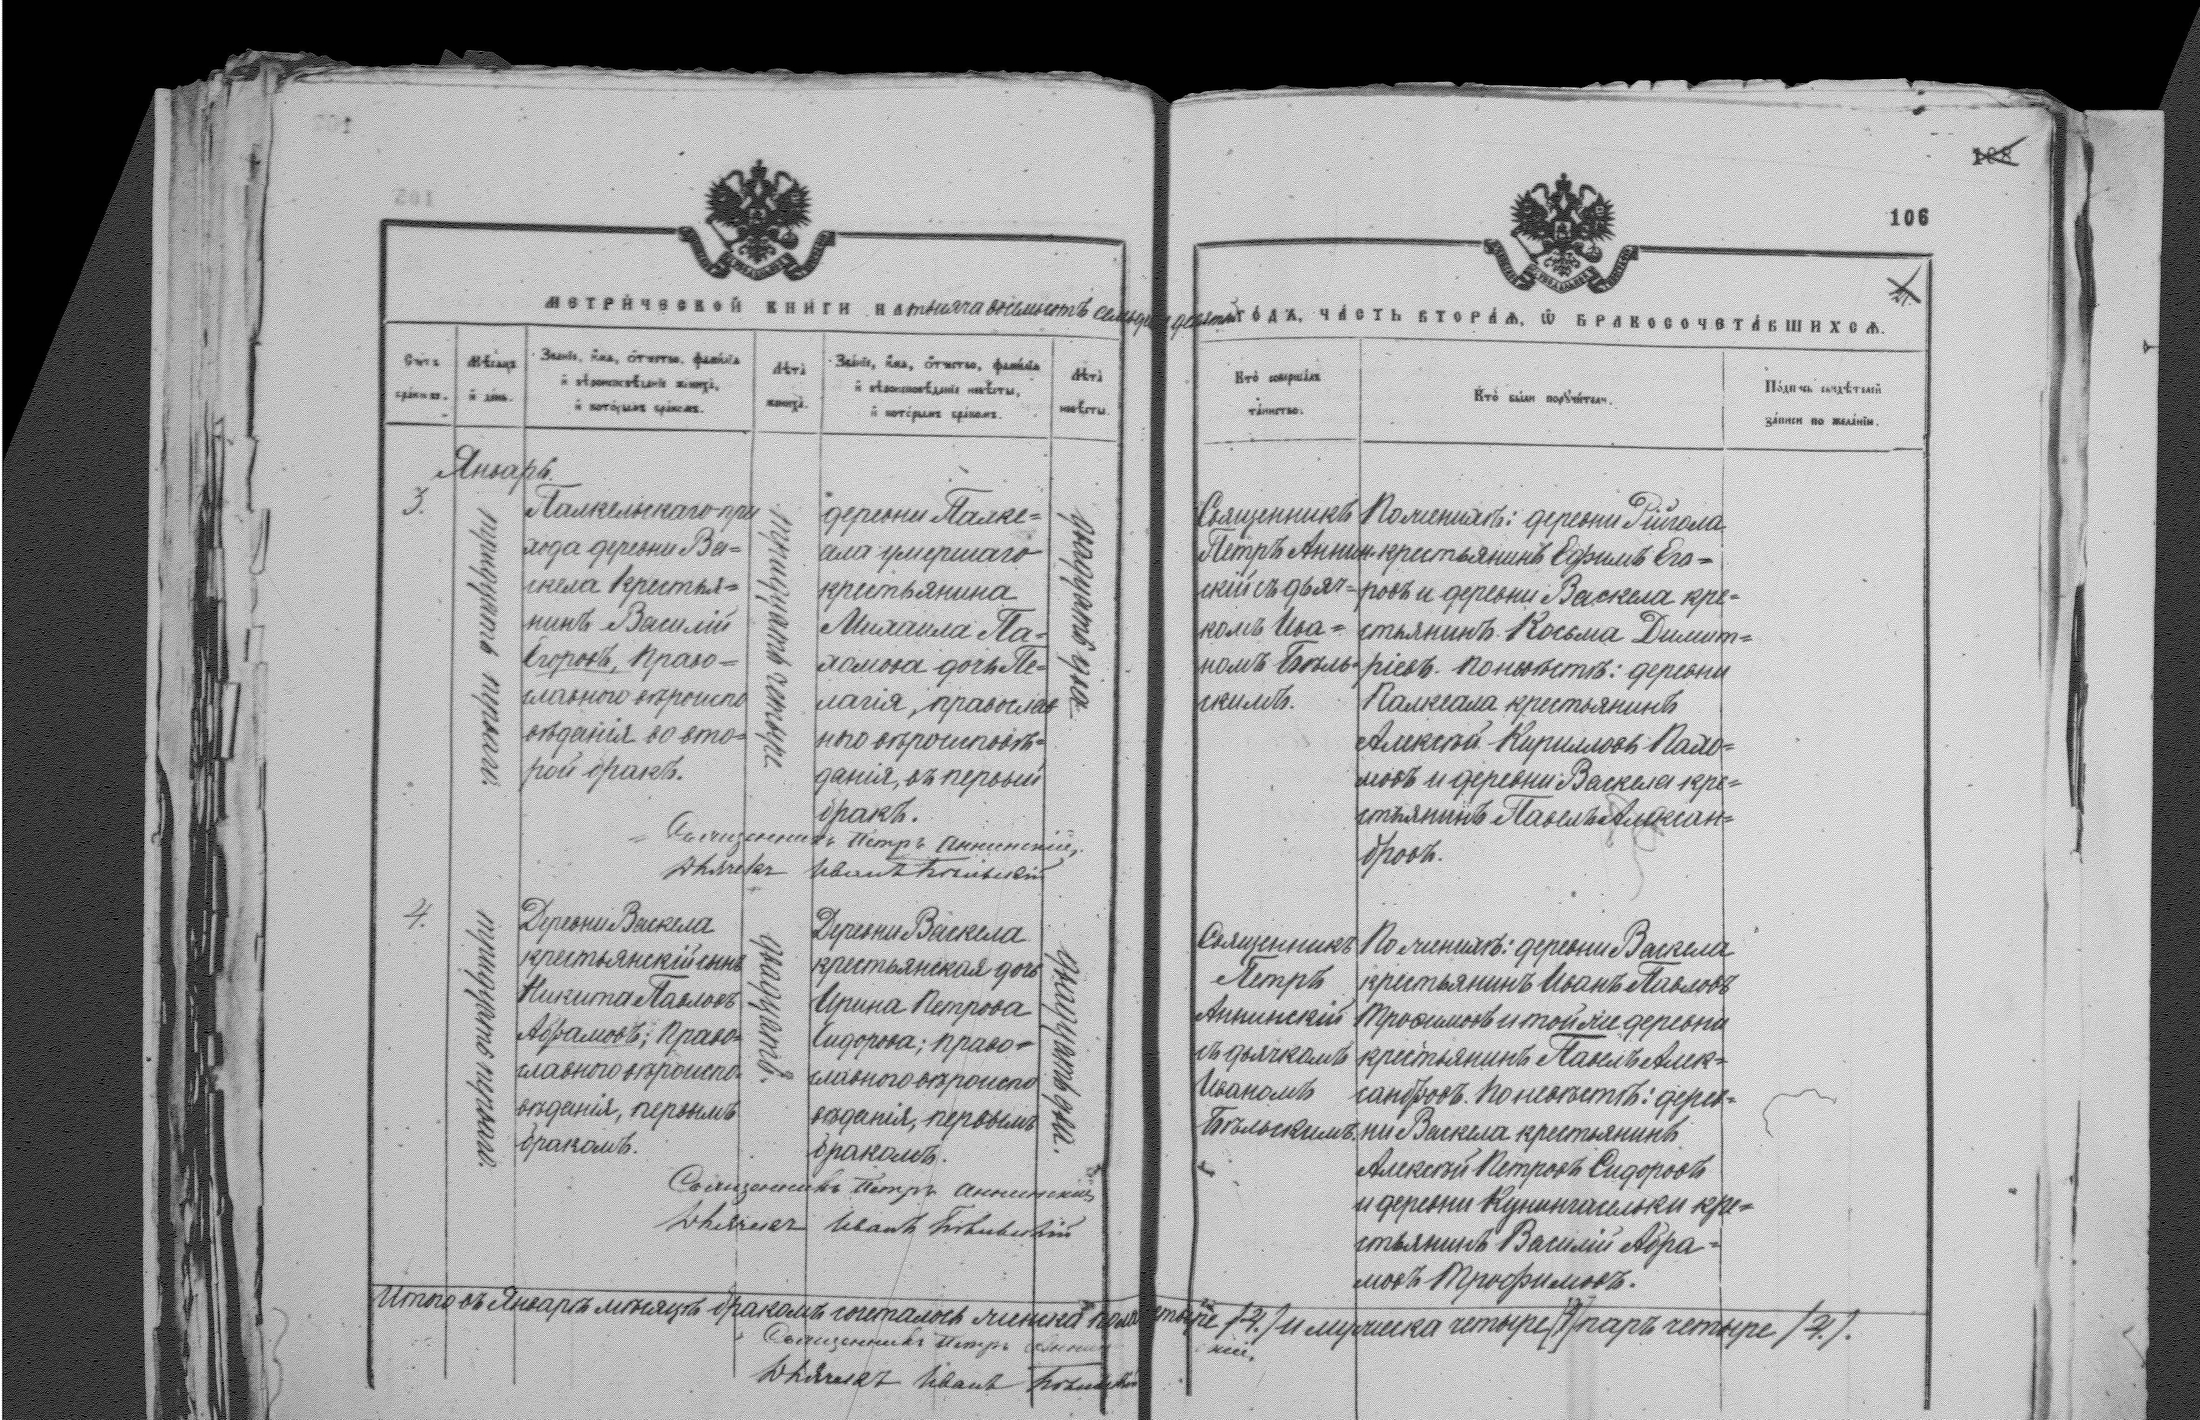 106
МЕТРИЧЕСКОЙ КНИГИ НА тысяча восемьсотъ семьдесят девятый ГОДЪ, ЧАСТЬ ВТОРАЯ, Ѡ БРАКОСОЧЕТАВШИХСѦ.
Счетъ браковъ.
Мѣсяцъ и день.
Званіе, имя, отчество, фамилія и вѣроисповѣданіе жениха, и которымъ бракомъ.
Лѣта жениха.
Званіе, имя, отчество, фамилія и вѣроисповѣданіе невѣсты, и которымъ бракомъ.
Лѣта невѣсты.
Кто совершалъ таинство.
Кто были поручители.
Подпись свидѣтелей записи по желанію.
Январь.
3.
тридцать перваго.
Палкельскаго при
хода деревни Ва=
скела крестья=
нинъ Василій
Егоровъ, право=
славного вѣроиспо
вѣданія во вто=
рой бракъ.
тридцать четыре
деревни Палке=
ала умершаго
крестьянина
Михаила Па=
хомова дочь Пе=
лагія, православ
ного вѣроисповѣ=
данія, въ первый
бракъ.
двадцать два
Священникъ
Петръ Аннин
скій съ дьяч=
комъ Ива=
номъ Бѣль=
скимъ.
По женихѣ: деревни Рійгола
крестьянинъ Ефимъ Его=
ровъ и деревни Васкела кре=
стьянинъ Косьма Димит=
ріевъ. По невѣстѣ: деревни
Палкеала крестьянинъ
Алексѣй Кирилловъ Пахо=
мовъ и деревни Васкела кре=
стьянинъ Павелъ Алексан=
дровъ.
Священникъ Петръ Аннинскій,
Дьячекъ Иванъ Бѣльскій
4.
тридцать перваго.
Деревни Васкела
крестьянскій сынъ
Никита Павловъ
Абрамовъ; право=
славного вѣроиспо=
вѣданія, первымъ
бракомъ.
двадцать.
Деревни Васкела
крестьянская дочь
Ирина Петрова
Сидорова; право=
славного вѣроиспо
вѣданія, первымъ
бракомъ.
двадцать два.
Священникъ
Петръ
Аннинскій
съ дьячкомъ
Иваномъ
Бѣльскимъ.
По женихѣ: деревни Васкела
крестьянинъ Иванъ Павловъ
Трофимовъ и той же деревни
крестьянинъ Павелъ Алек=
сандровъ. По невѣстѣ: дерев=
ни Васкела крестьянинъ
Алексѣй Петровъ Сидоровъ
и деревни Кунингасельки кре=
стьянинъ Василій Абра=
мовъ Трофимовъ.
Священникъ Петръ Аннинскій,
Дьячекъ Иванъ Бѣльскій
Итого въ Январѣ мѣсяцѣ бракомъ сочеталось женска пола четыре /4./ и мужеска четыре /4/ паръ четыре /4./.
Священникъ Петръ Аннинскій,
Дьячекъ Иванъ Бѣльскій